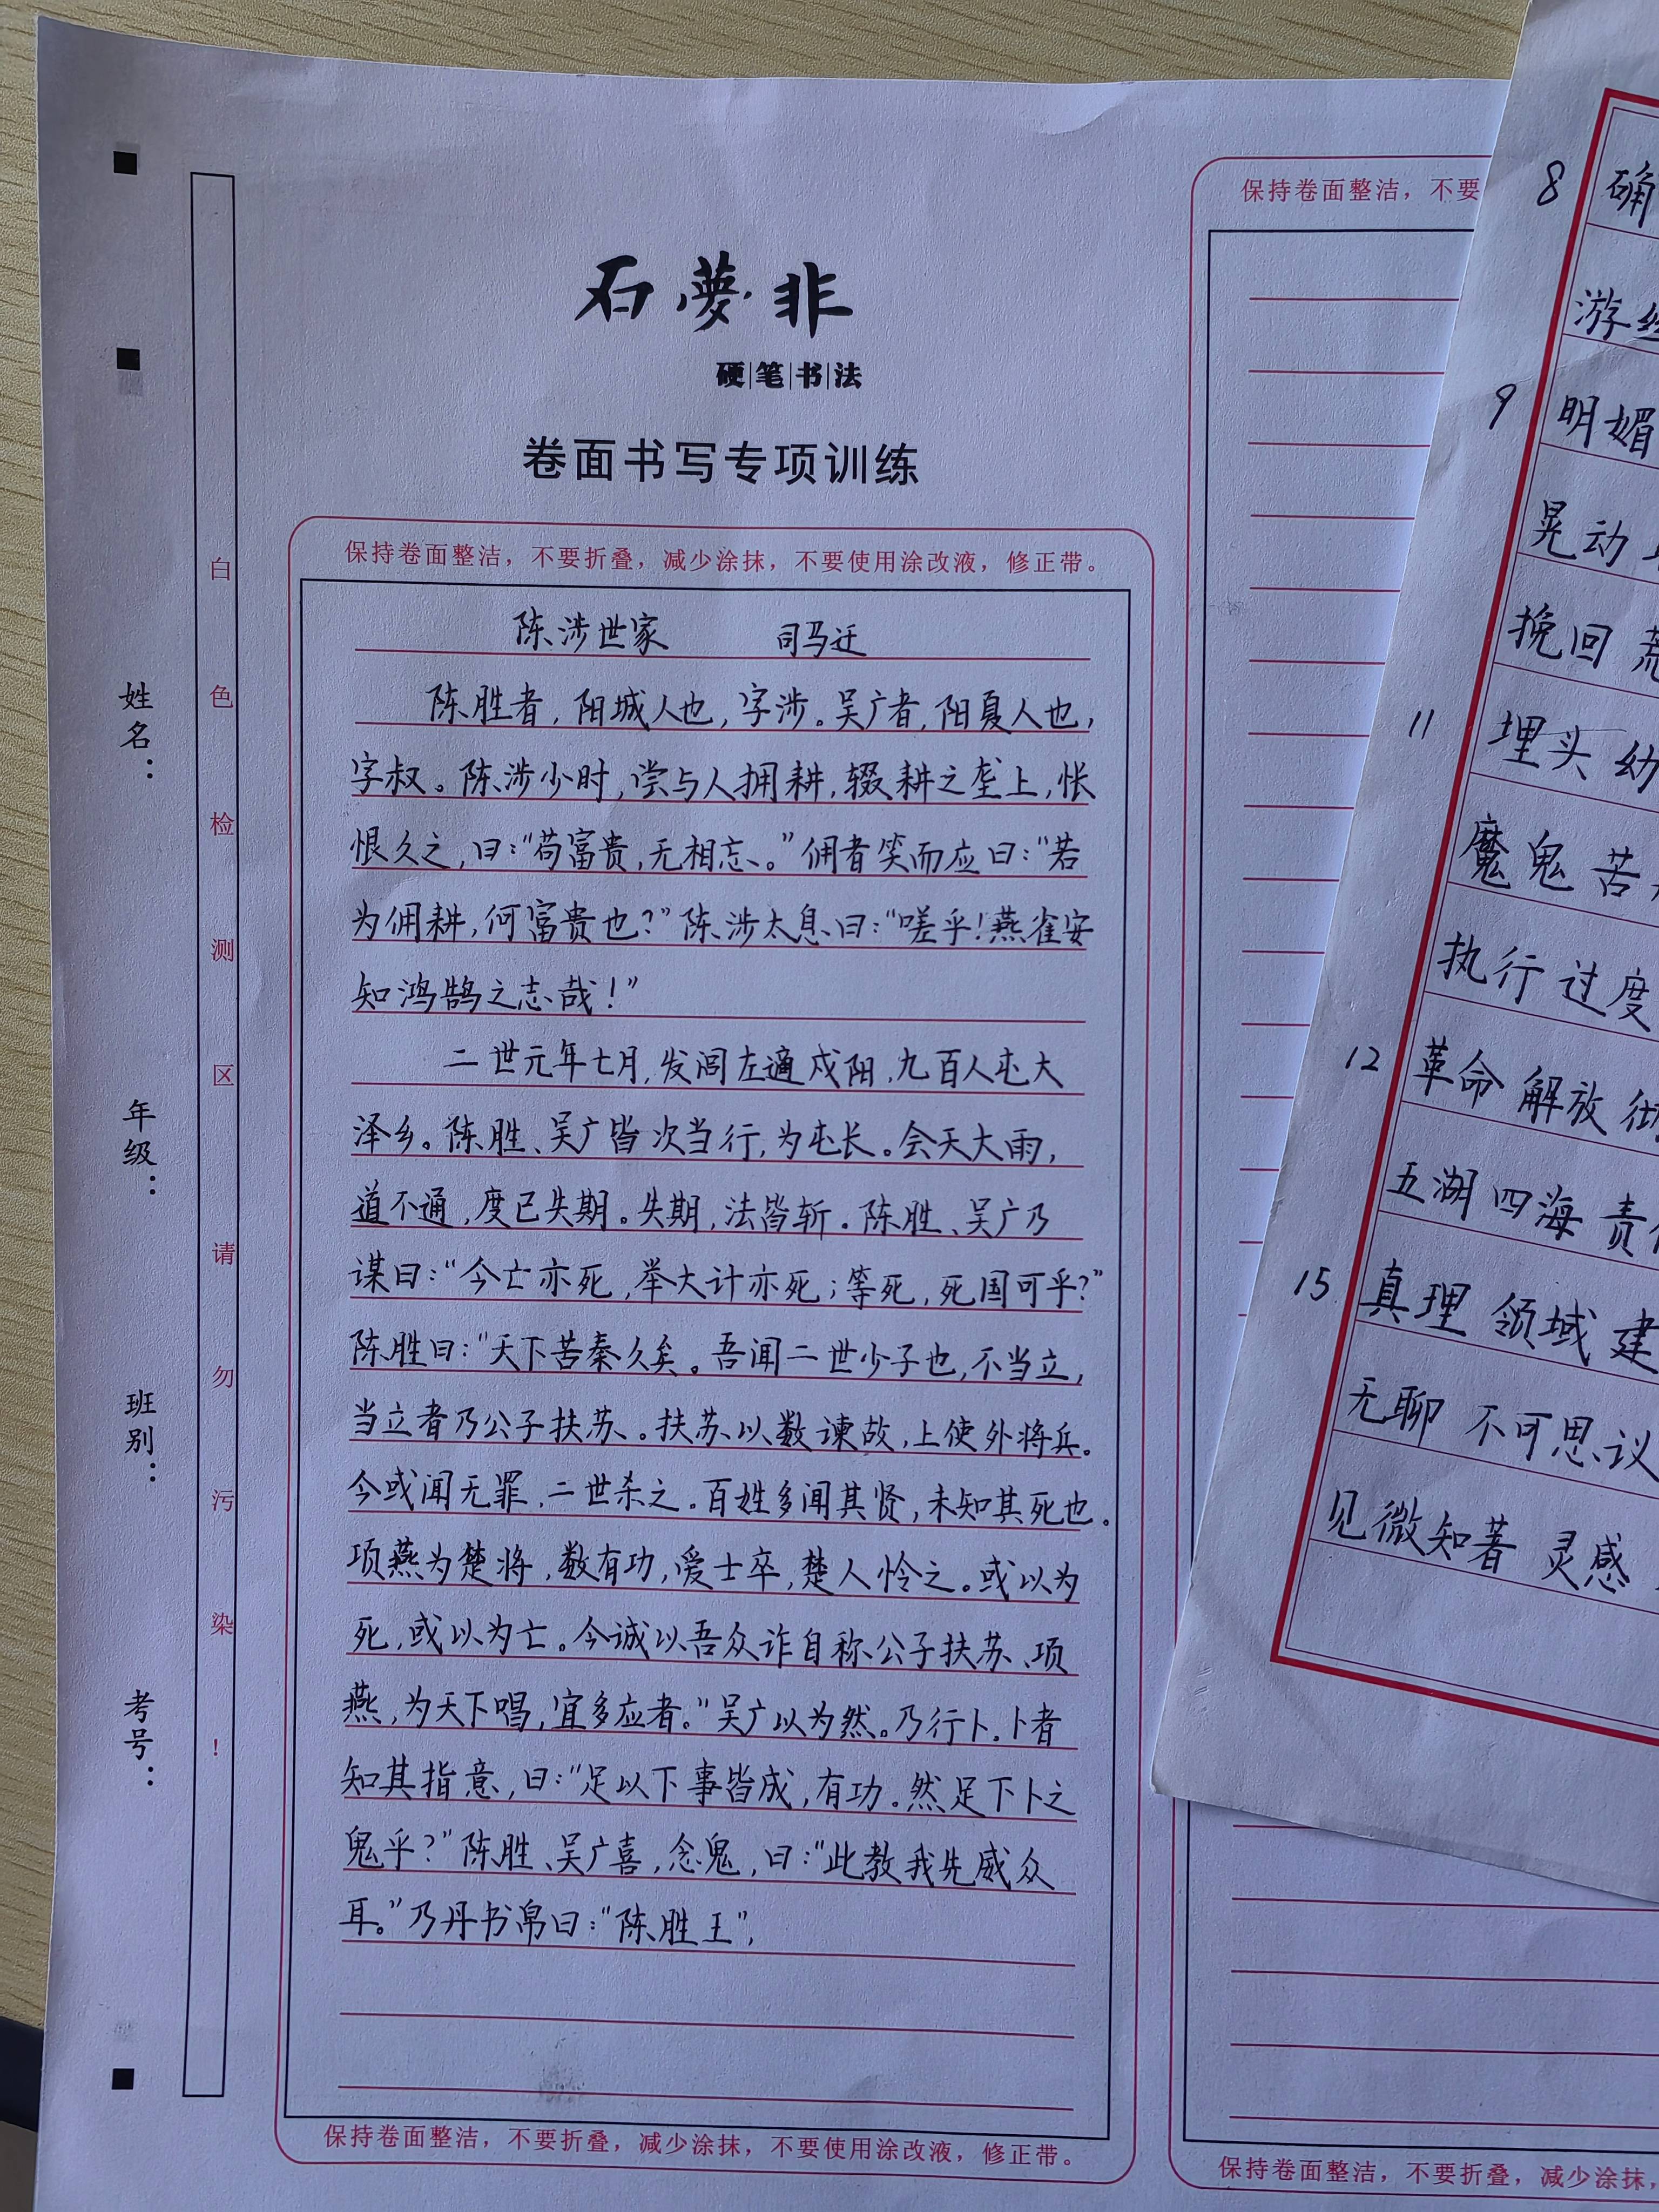 石夢非
硬|笔|书|法
卷面书写专项训练
保持卷面整洁，不要折叠，减少涂抹，不要使用涂改液，修正带。
陈涉世家 司马迁
陈胜者，阳城人也，字涉。吴广者，阳夏人也，
字叔。陈涉少时，尝与人拥耕，辍耕之垄上，怅
恨久之，曰：“苟富贵，无相忘。”佣者笑而应曰：“若
为佣耕，何富贵也？”陈涉太息曰：“嗟乎！燕雀安
知鸿鹄之志哉！”
二世元年七月，发闾左適戍阳，九百人屯大
泽乡。陈胜、吴广皆次当行，为屯长。会天大雨，
道不通，度已失期。失期，法皆斩。陈胜、吴广乃
谋曰：“今亡亦死，举大计亦死；等死，死国可乎？”
陈胜曰：“天下苦秦久矣。吾闻二世少子也，不当立，
当立者乃公子扶苏。扶苏以数谏故，上使外将兵。
今或闻无罪，二世杀之。百姓多闻其贤，未知其死也。
项燕为楚将，数有功，爱士卒，楚人怜之。或以为
死，或以为亡。今诚以吾众诈自称公子扶苏、项
燕，为天下唱，宜多应者。”吴广以为然。乃行卜。卜者
知其指意，曰：“足以下事皆成，有功。然足下卜之
鬼乎？”陈胜、吴广喜，念鬼，曰：“此教我先威众
耳。”乃丹书帛曰：“陈胜王”，
保持卷面整洁，不要折叠，减少涂抹，不要使用涂改液，修正带。
姓名：
年级：
班别：
考号：
白色检测区请勿污染！
保持卷面整洁，不要
保持卷面整洁，不要折叠，减少涂抹，
8 确
游丝
9 明媚
晃动
挽回
11 埋头 幼
魔鬼 苦
执行 过度
12 革命 解放
五湖四海 责
15 真理 领域 建
无聊 不可思议
见微知著 灵感